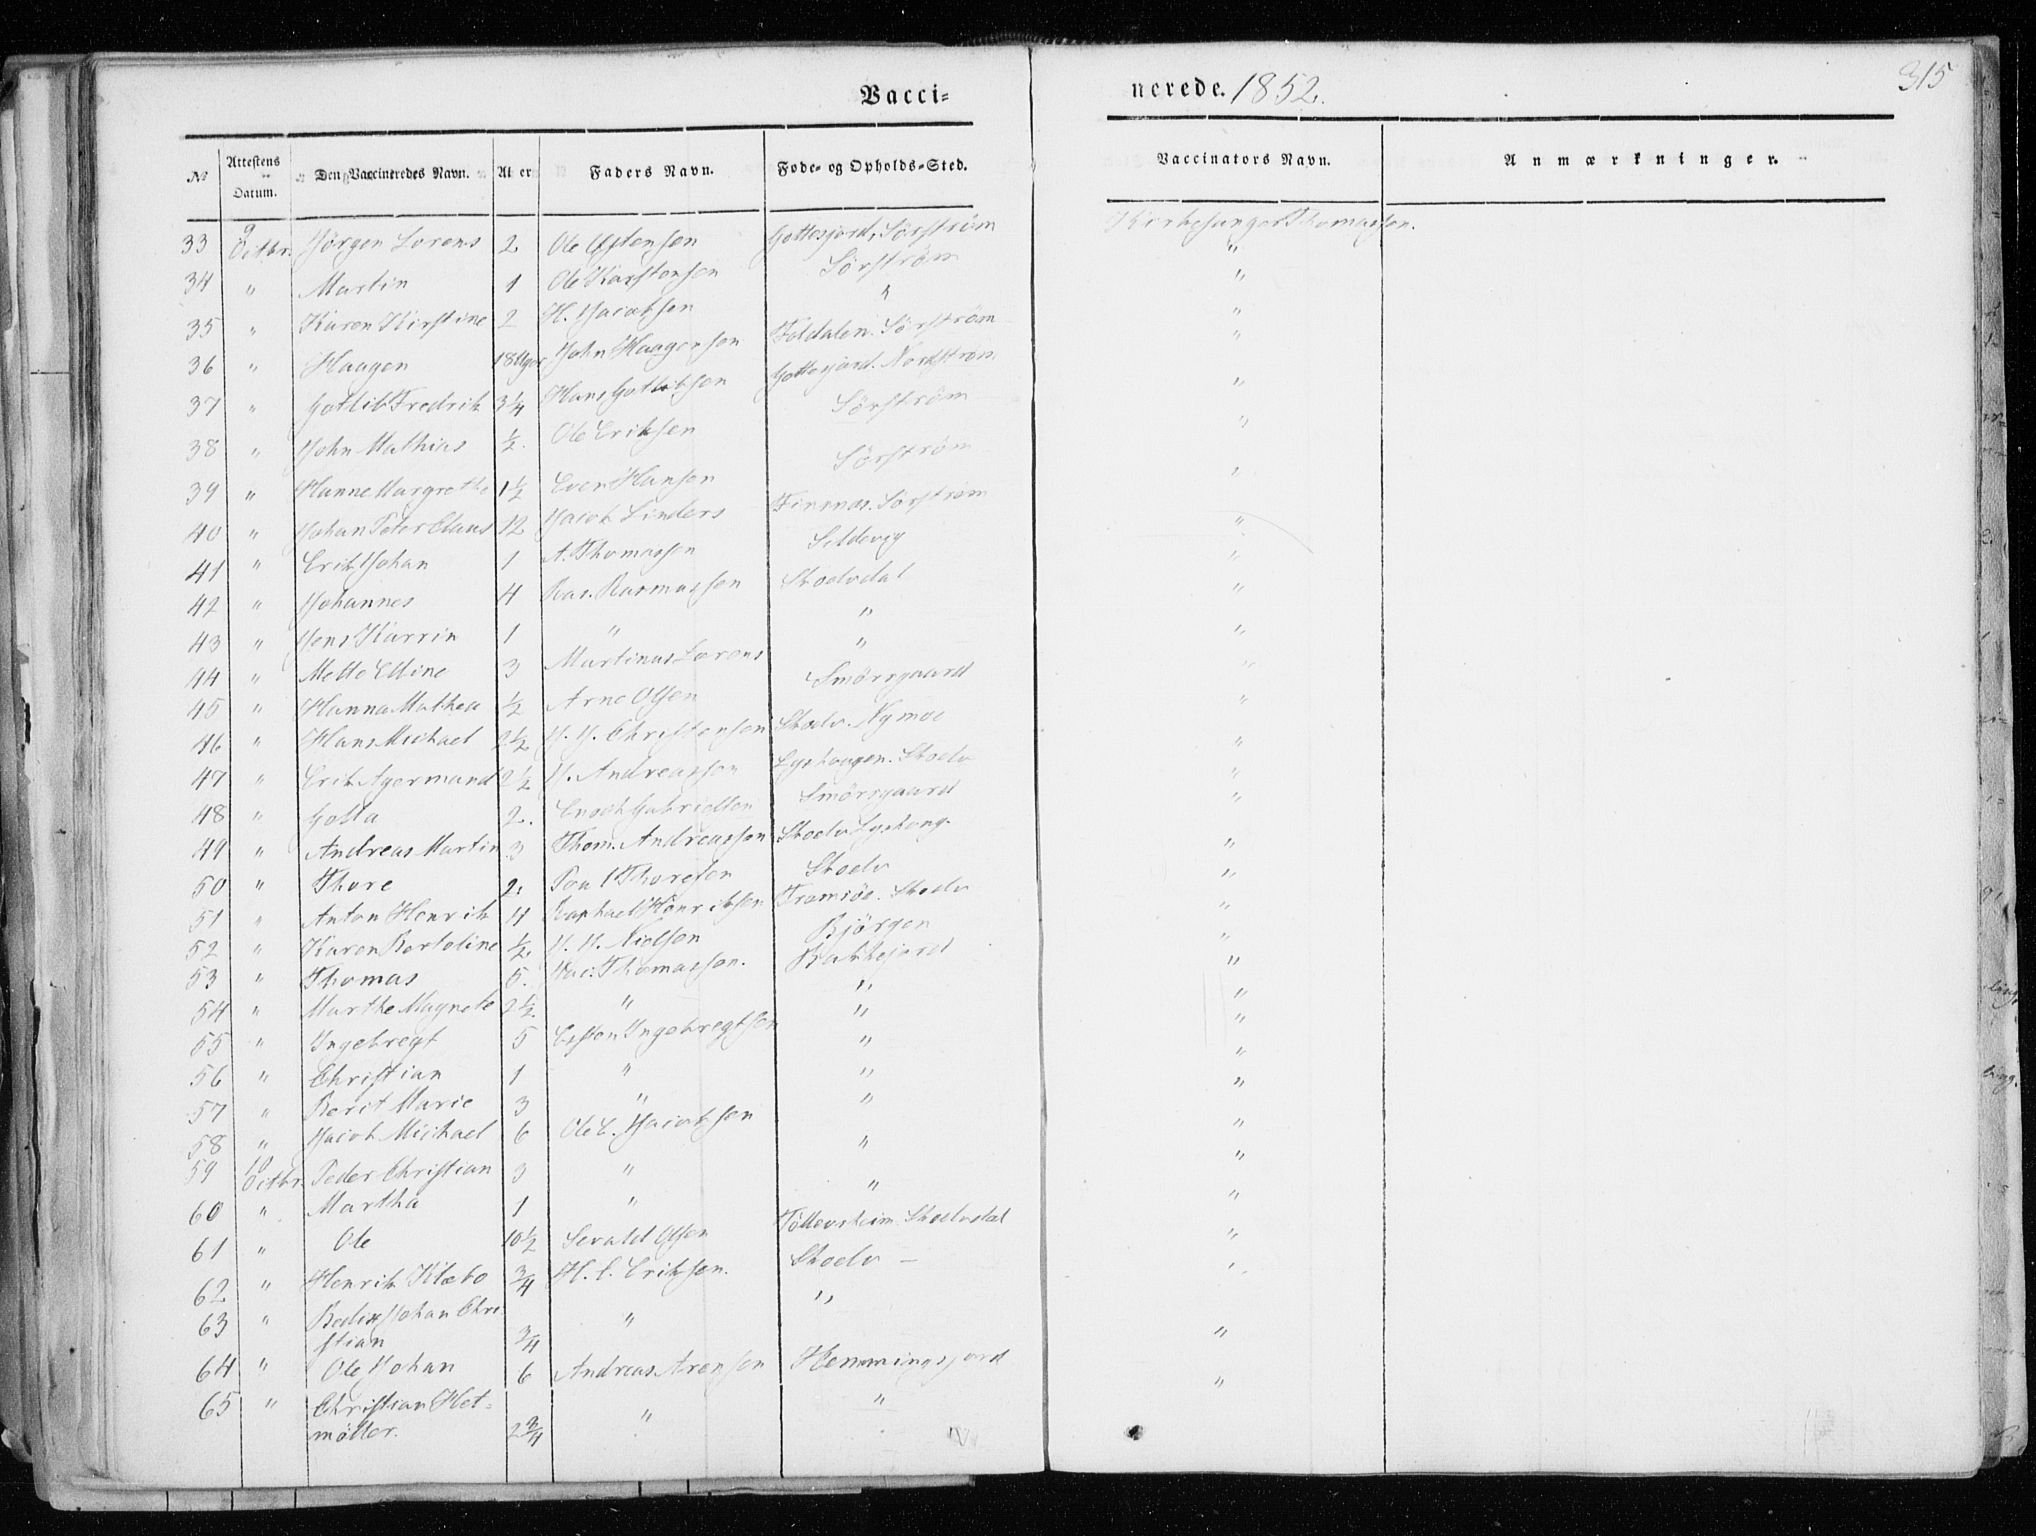 Vacci-
nerede. 1852.
315
No
Attestens Datum.
Den Vaccineredes Navn.
Alder
Faders Navn.
Føde- og Opholds-Sted.
Vaccinators Navn.
Anmærkninger.
33 9 Octbr. Jörgen Lorens 2 Ole Østensen Gottesjord, Sörström Kirkesanger Thomassen.
34 " Martin 1 Ole Karstensen Sörström "
35 " Karen Kirstine 2 H. Jacobsen " "
36 " Haagen 18 Uger John Haagensen Foldalen. Sörström "
37 " Gotlib Fredrik 3 1/4 Hans Gotlibsen Gottesjord. Nordström "
38 " John Mathias 1/2. Ole Eriksen Sörström "
39 " Hanne Margrethe 1 1/2 Even Hansen Sörström "
40 " Johan Peter Claus 12 Jacob Linders Finnnæs. Sörström "
41 " Erik Johan 1 A. Thomassen Seldevig "
42 " Johannes 4 Ras. Rasmussen Skoelvdal "
43 " Jens Karrin 1 " " "
44 " Mette Elline 3 Martinus Lorens " "
45 " Hanna Mathea 1/2 Arne Olsen Smörsgaard "
46 " Hans Michael 2 1/2. J. J. Christensen Skoelv. Nymoe "
47 " Erik Agermand 2 1/2 J. Andreassen Lyshaugen. Skoelv "
48 " Golla 2. Enoch Gabrielsen Smörsgaard "
49 " Andreas Martin 3 Thom. Andreassen Skoelv Lyshaug. "
50 " Thore 2. Paul Thoresen Skoelv "
51 " Anton Henrik 4 Raphael Henriksen Tromsöe. Skoelv "
52 " Karen Bertoline 1/2. J. H. Nielsen Bjørgen "
53 " Thomas 5. Jac. Thomassen. Bakkejord "
54 " Marthe Magnete 2 1/2. " " "
55 " Ingebregt 5 Esten Ingebregtsen " "
56 " Christian 1 " " "
57 " Berit Marie 3 " " "
58 " Jacob Michael 6 Ole E. Jacobsen " "
59 10 Octbr. Peder Christian 3 " " "
60 " Martha 1 " " "
61 " Ole 10 1/2 Sevald Olsen Töllevsheim. Skoelvdal "
62 " Henrik Klæbo 3/4 H. C. Eriksen. Skoelv — "
63 " Johan Chri-
stian 3/4 " " "
64 " Ole Johan 6 Andreas Arensen Hemmingsjord "
65 " Christian Het-
møller. 2 3/4 " "